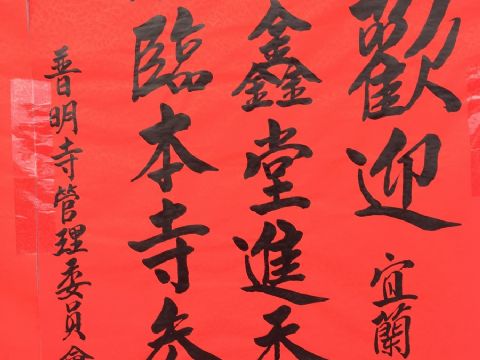 歡迎宜蘭
鑫堂進香
臨本寺參
普明寺管理委員會